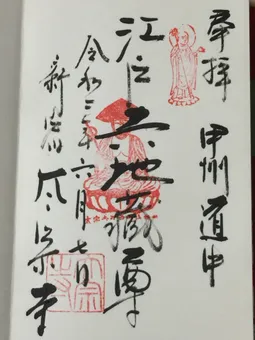 奉拝
甲州道中
江戸六地蔵尊
令和三年六月七日
新宿 太宗寺